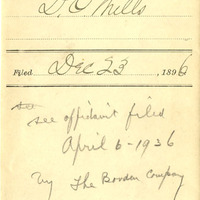 D. O. Mills
Filed Dec 23, 1896
see affidavit filed
April 6 - 1936
by The Borden Company